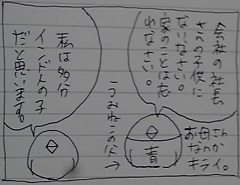 会社の社長
さんの子供に
なりなさい。
家のことは忘
れなさい。
お母さん
なんか
キライ。
青
の父→
私は多分
インド人の子
だと思います。